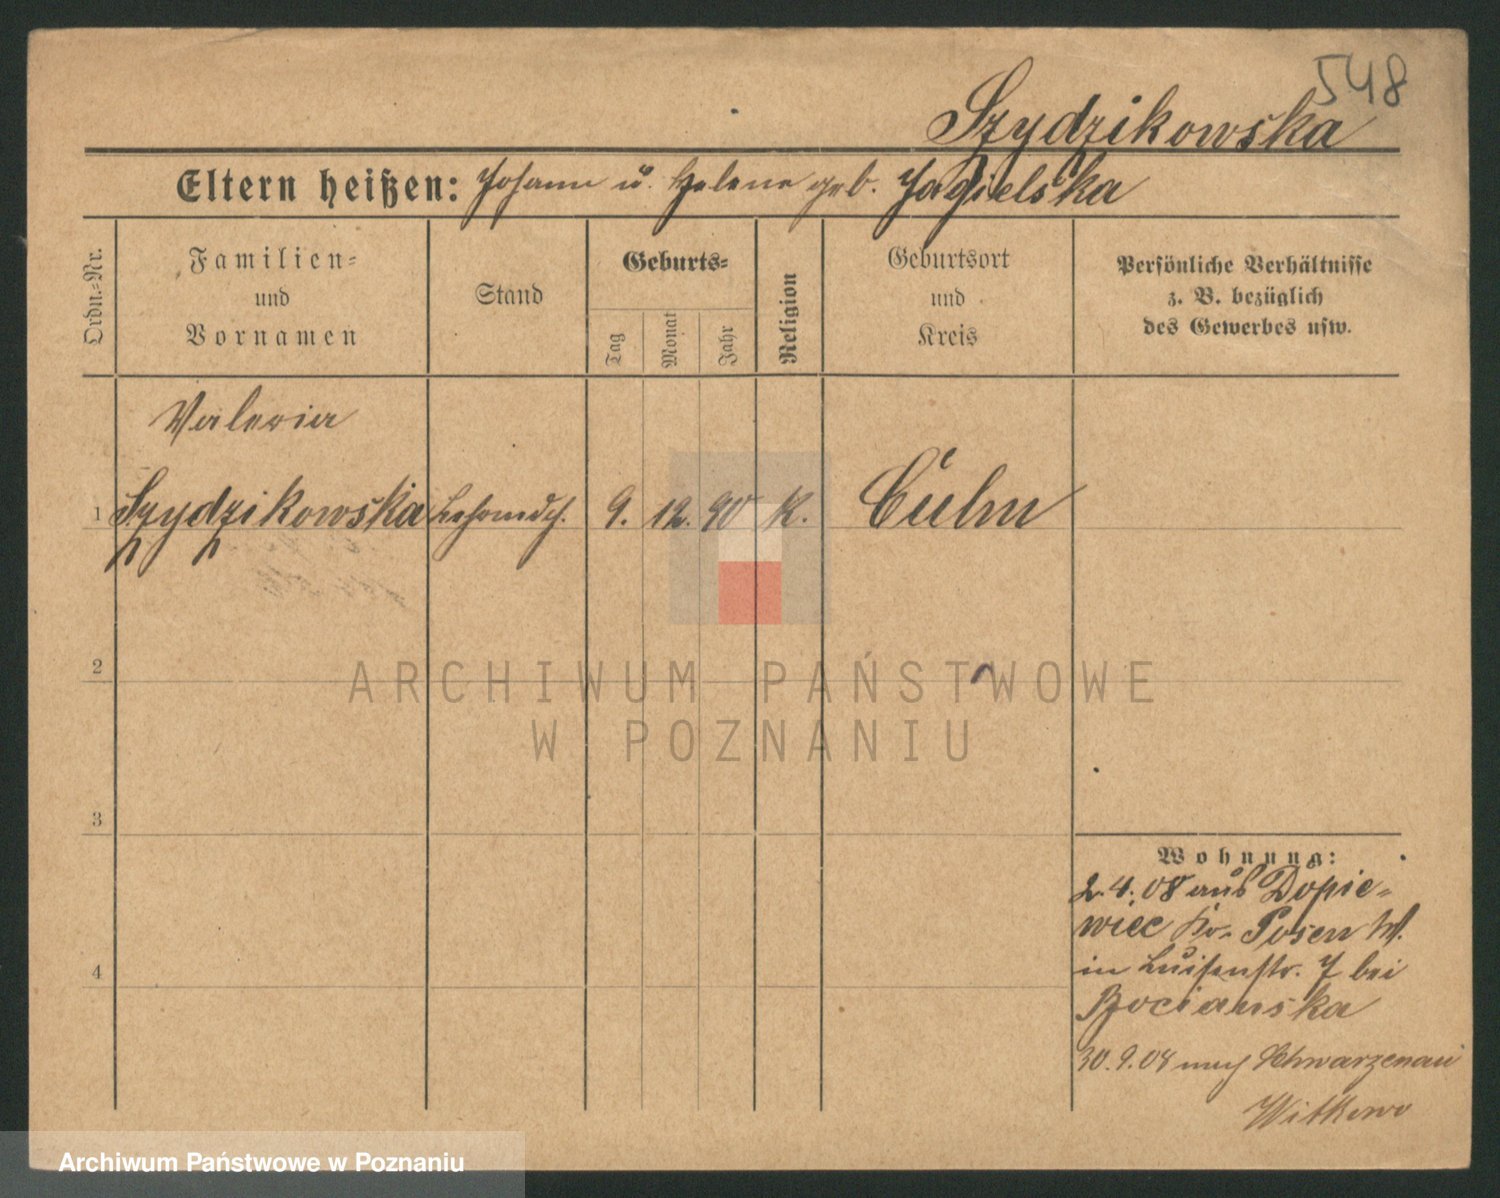 548
Szydzikowska
Eltern heißen: Johann u. Helene geb. Jagielska
Ordn.-Nr.
Familien-
und
Vornamen
Stand
Geburts-
Tag
Monat
Jahr
Religion
Geburtsort
und
Kreis
Persönliche Verhältnisse
z. B. bezüglich
des Gewerbes usw.
Valeria
1 Szydzikowska 9. 12. 90 K. Culm
2
3
4
Wohnung:
2.4.08 aus Dopie-
wiec Kr. Posen W.
in Luisenstr. 7 bei
Bocianska
30.9.08 nach Schwarzenau
Witkowo
ARCHIWUM PAŃSTWOWE
W POZNANIU
Archiwum Państwowe w Poznaniu